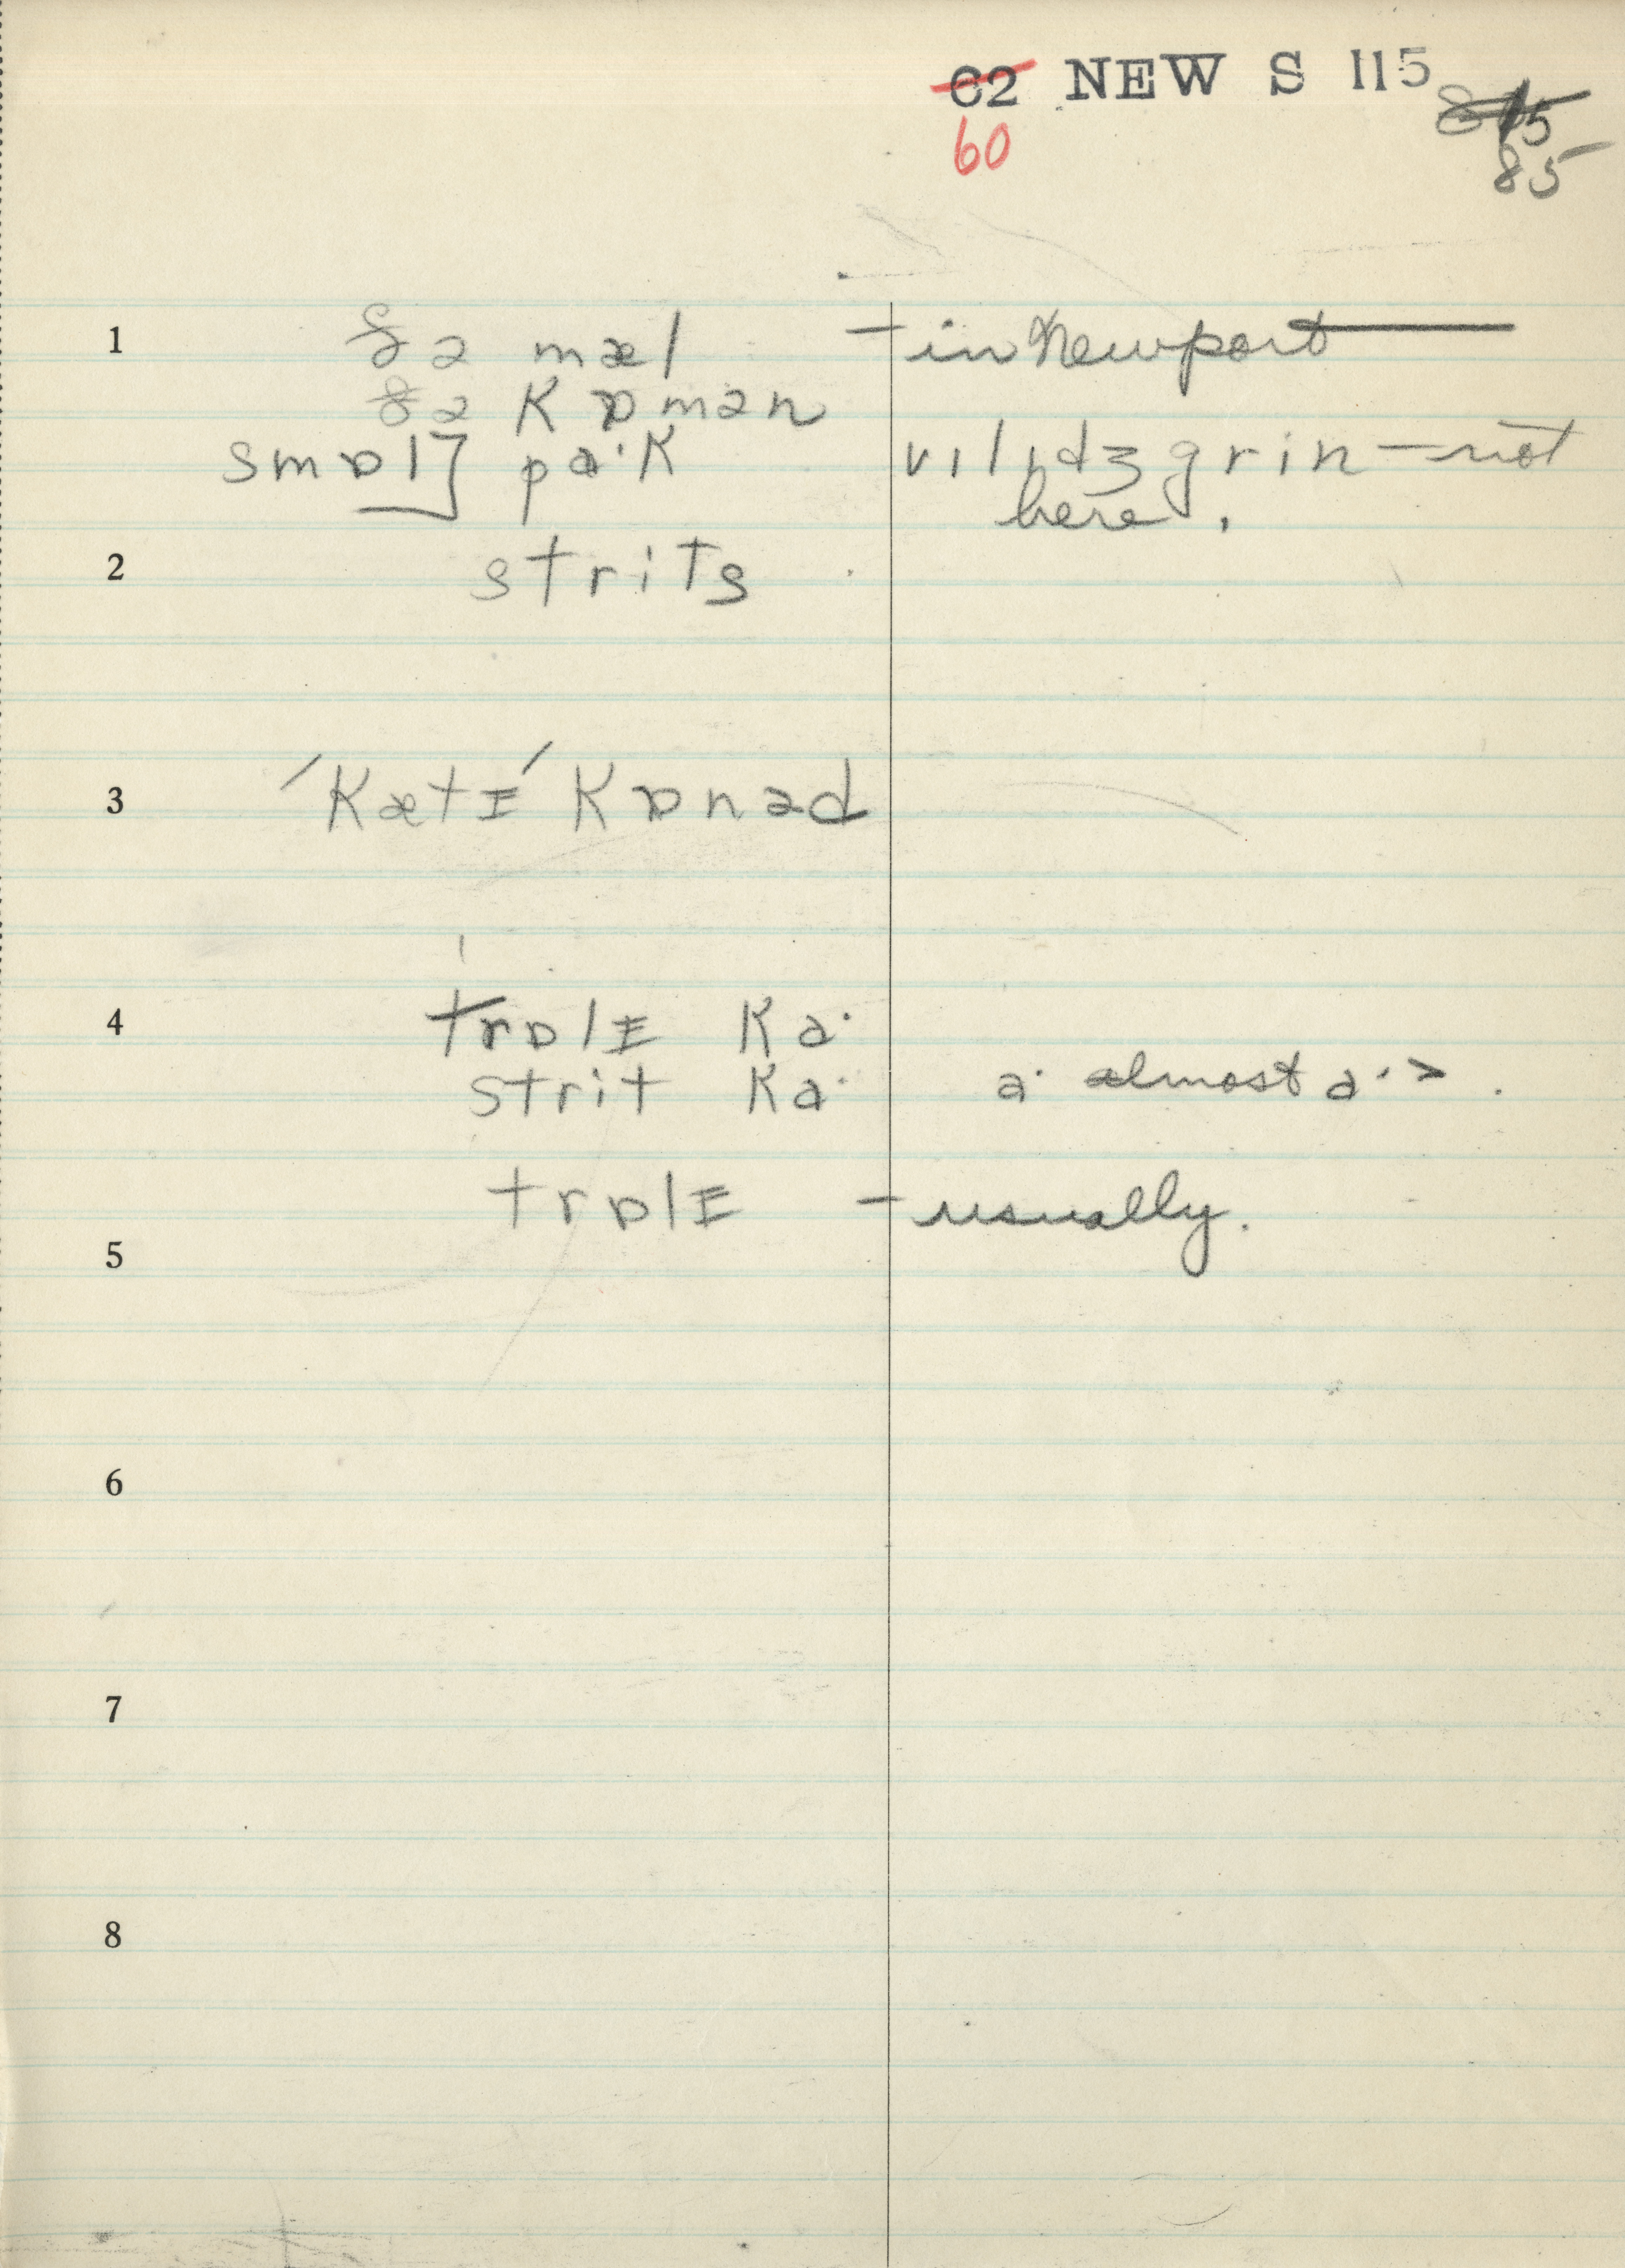 C2 NEW S 115 815
60 85
1 ðə mæl — in Newport
ðə kɒmən
smɒl] pa·k vɪlɪdʒ grin — not
here.
2 strits
3 ′kætɪ′kɒnəd
4 trɒlɪ ka·
strit ka· a· almost a·>.
trɒlɪ — usually.
5
6
7
8